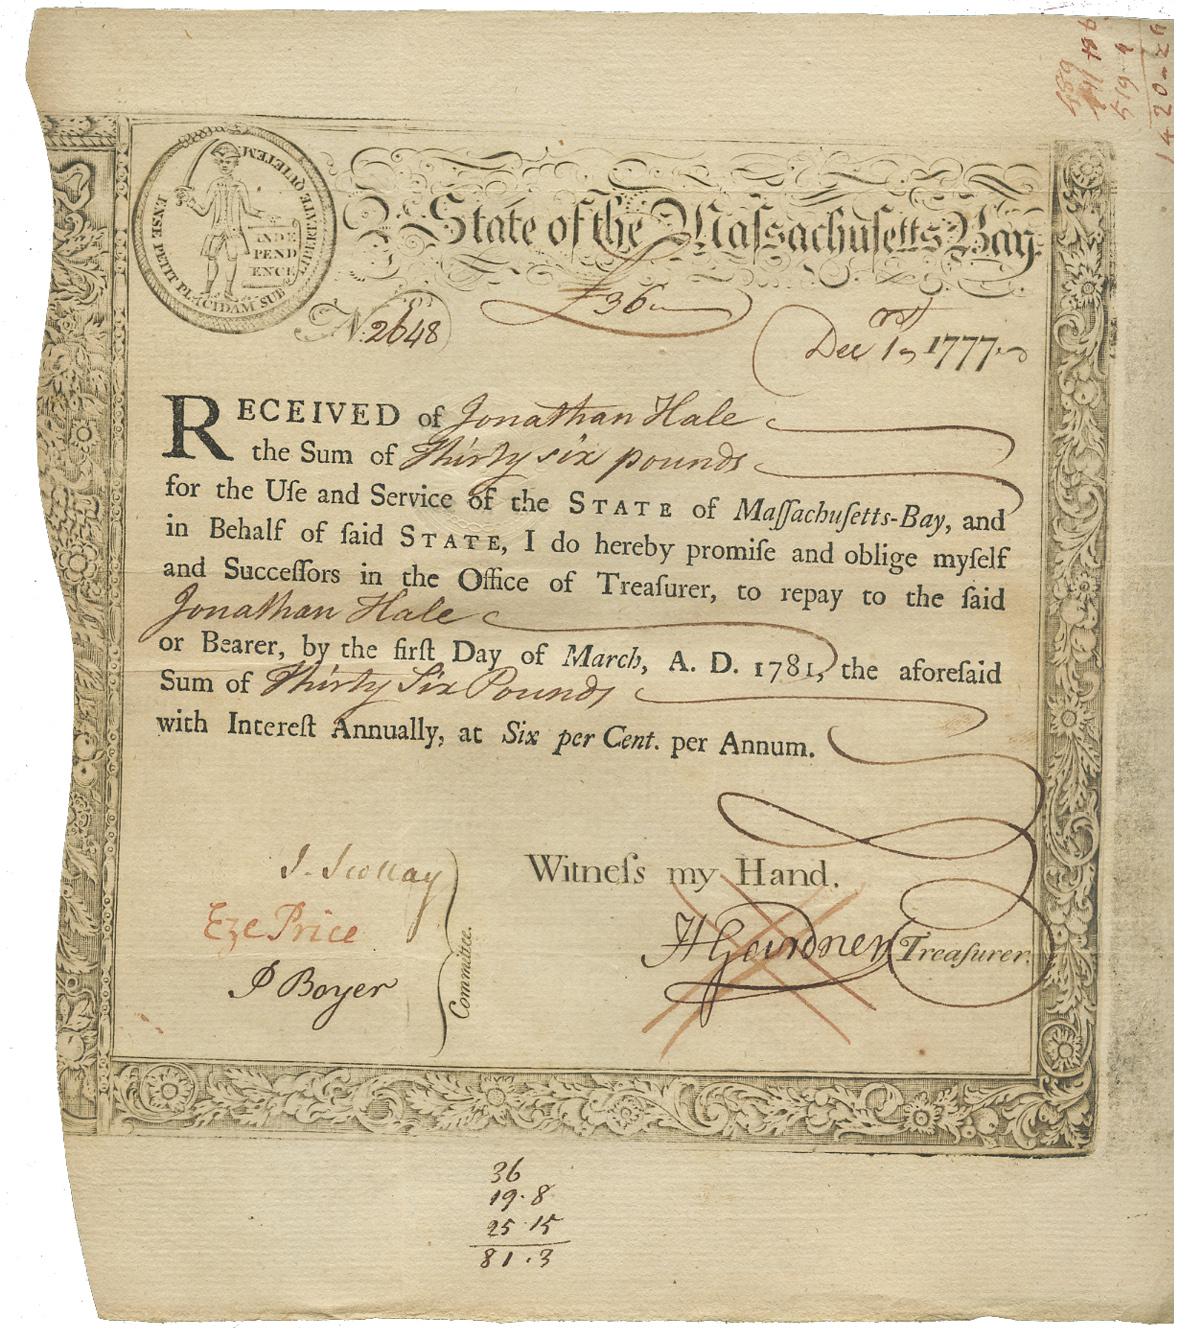 ENSE PETIT PLACIDAM SUB LIBERTATE QUIETEM
INDE
PEND
ENCE
State of the Maſsachuſetts Bay.
£36
No. 2648
Decr. 1st 1777.
RECEIVED of Jonathan Hale
the Sum of Thirty six pounds
for the Uſe and Service of the STATE of Maſſachuſetts-Bay, and
in Behalf of ſaid STATE, I do hereby promiſe and oblige myſelf
and Succeſſors in the Office of Treaſurer, to repay to the ſaid
Jonathan Hale
or Bearer, by the firſt Day of March, A. D. 1781, the aforeſaid
Sum of Thirty Six Pounds
with Intereſt Annually, at Six per Cent. per Annum.
Witneſs my Hand.
J. Scollay
Eze Price
P Boyer
Committee.
HGardner Treaſurer.
36
19.8
25 15
81.3
519.9
1420-29